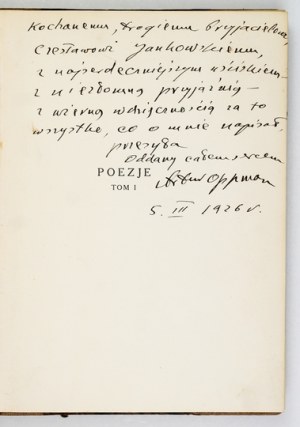 Kochanemu, drogiemu Przyjacielowi,
Czesławowi Jankowskiemu,
z najserdeczniejszym uściskiem –
z niezłomną przyjaźnią –
z wierną wdzięcznością za to
wszystko, co o mnie napisał,
oddany całem sercem
POEZJE
TOM I
Artur Oppman
5. III 1926 r.